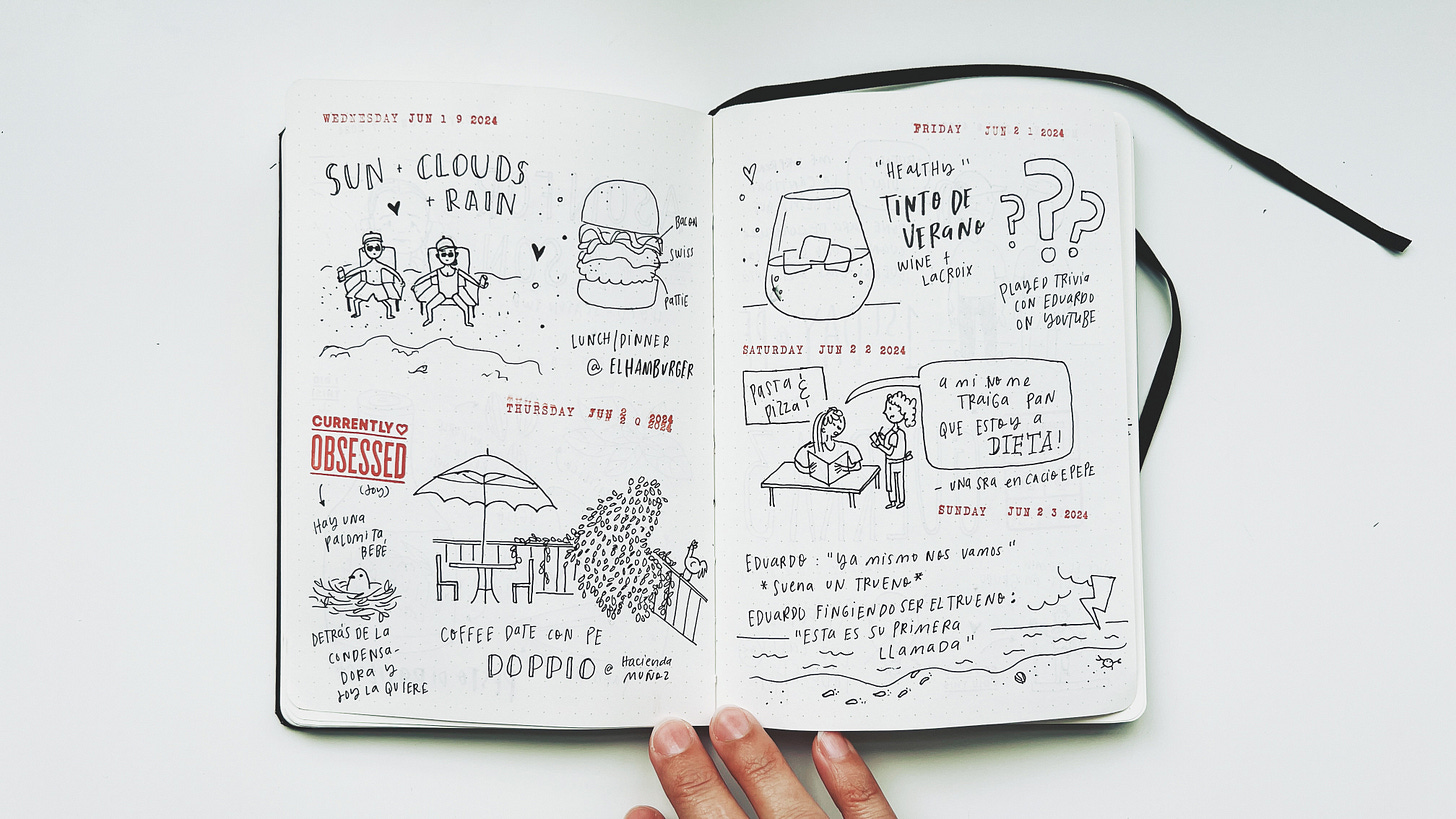 WEDNESDAY JUN 19 2024
SUN + CLOUDS
+ RAIN
BACON
SWISS
PATTIE
LUNCH/DINNER
@ EL HAMBURGER
THURSDAY JUN 20 2024
CURRENTLY
OBSESSED
(JOY)
HAY UNA
PALOMITA
BEBÉ
DETRÁS DE LA
CONDENSA-
DORA Y
JOY LA QUIERE
COFFEE DATE CON PE
DOPPIO @ HACIENDA
MUÑOZ
FRIDAY JUN 21 2024
"HEALTHY"
TINTO DE
VERANO
WINE +
LACROIX
???
PLAYED TRIVIA
CON EDUARDO
ON YOUTUBE
SATURDAY JUN 22 2024
PASTA &
PIZZA!
A MI NO ME
TRAIGA PAN
QUE ESTOY A
DIETA!
- UNA SRA EN CACIO E PEPE
SUNDAY JUN 23 2024
EDUARDO: "YA MISMO NOS VAMOS"
*SUENA UN TRUENO*
EDUARDO FINGIENDO SER EL TRUENO:
"ESTA ES SU PRIMERA
LLAMADA"